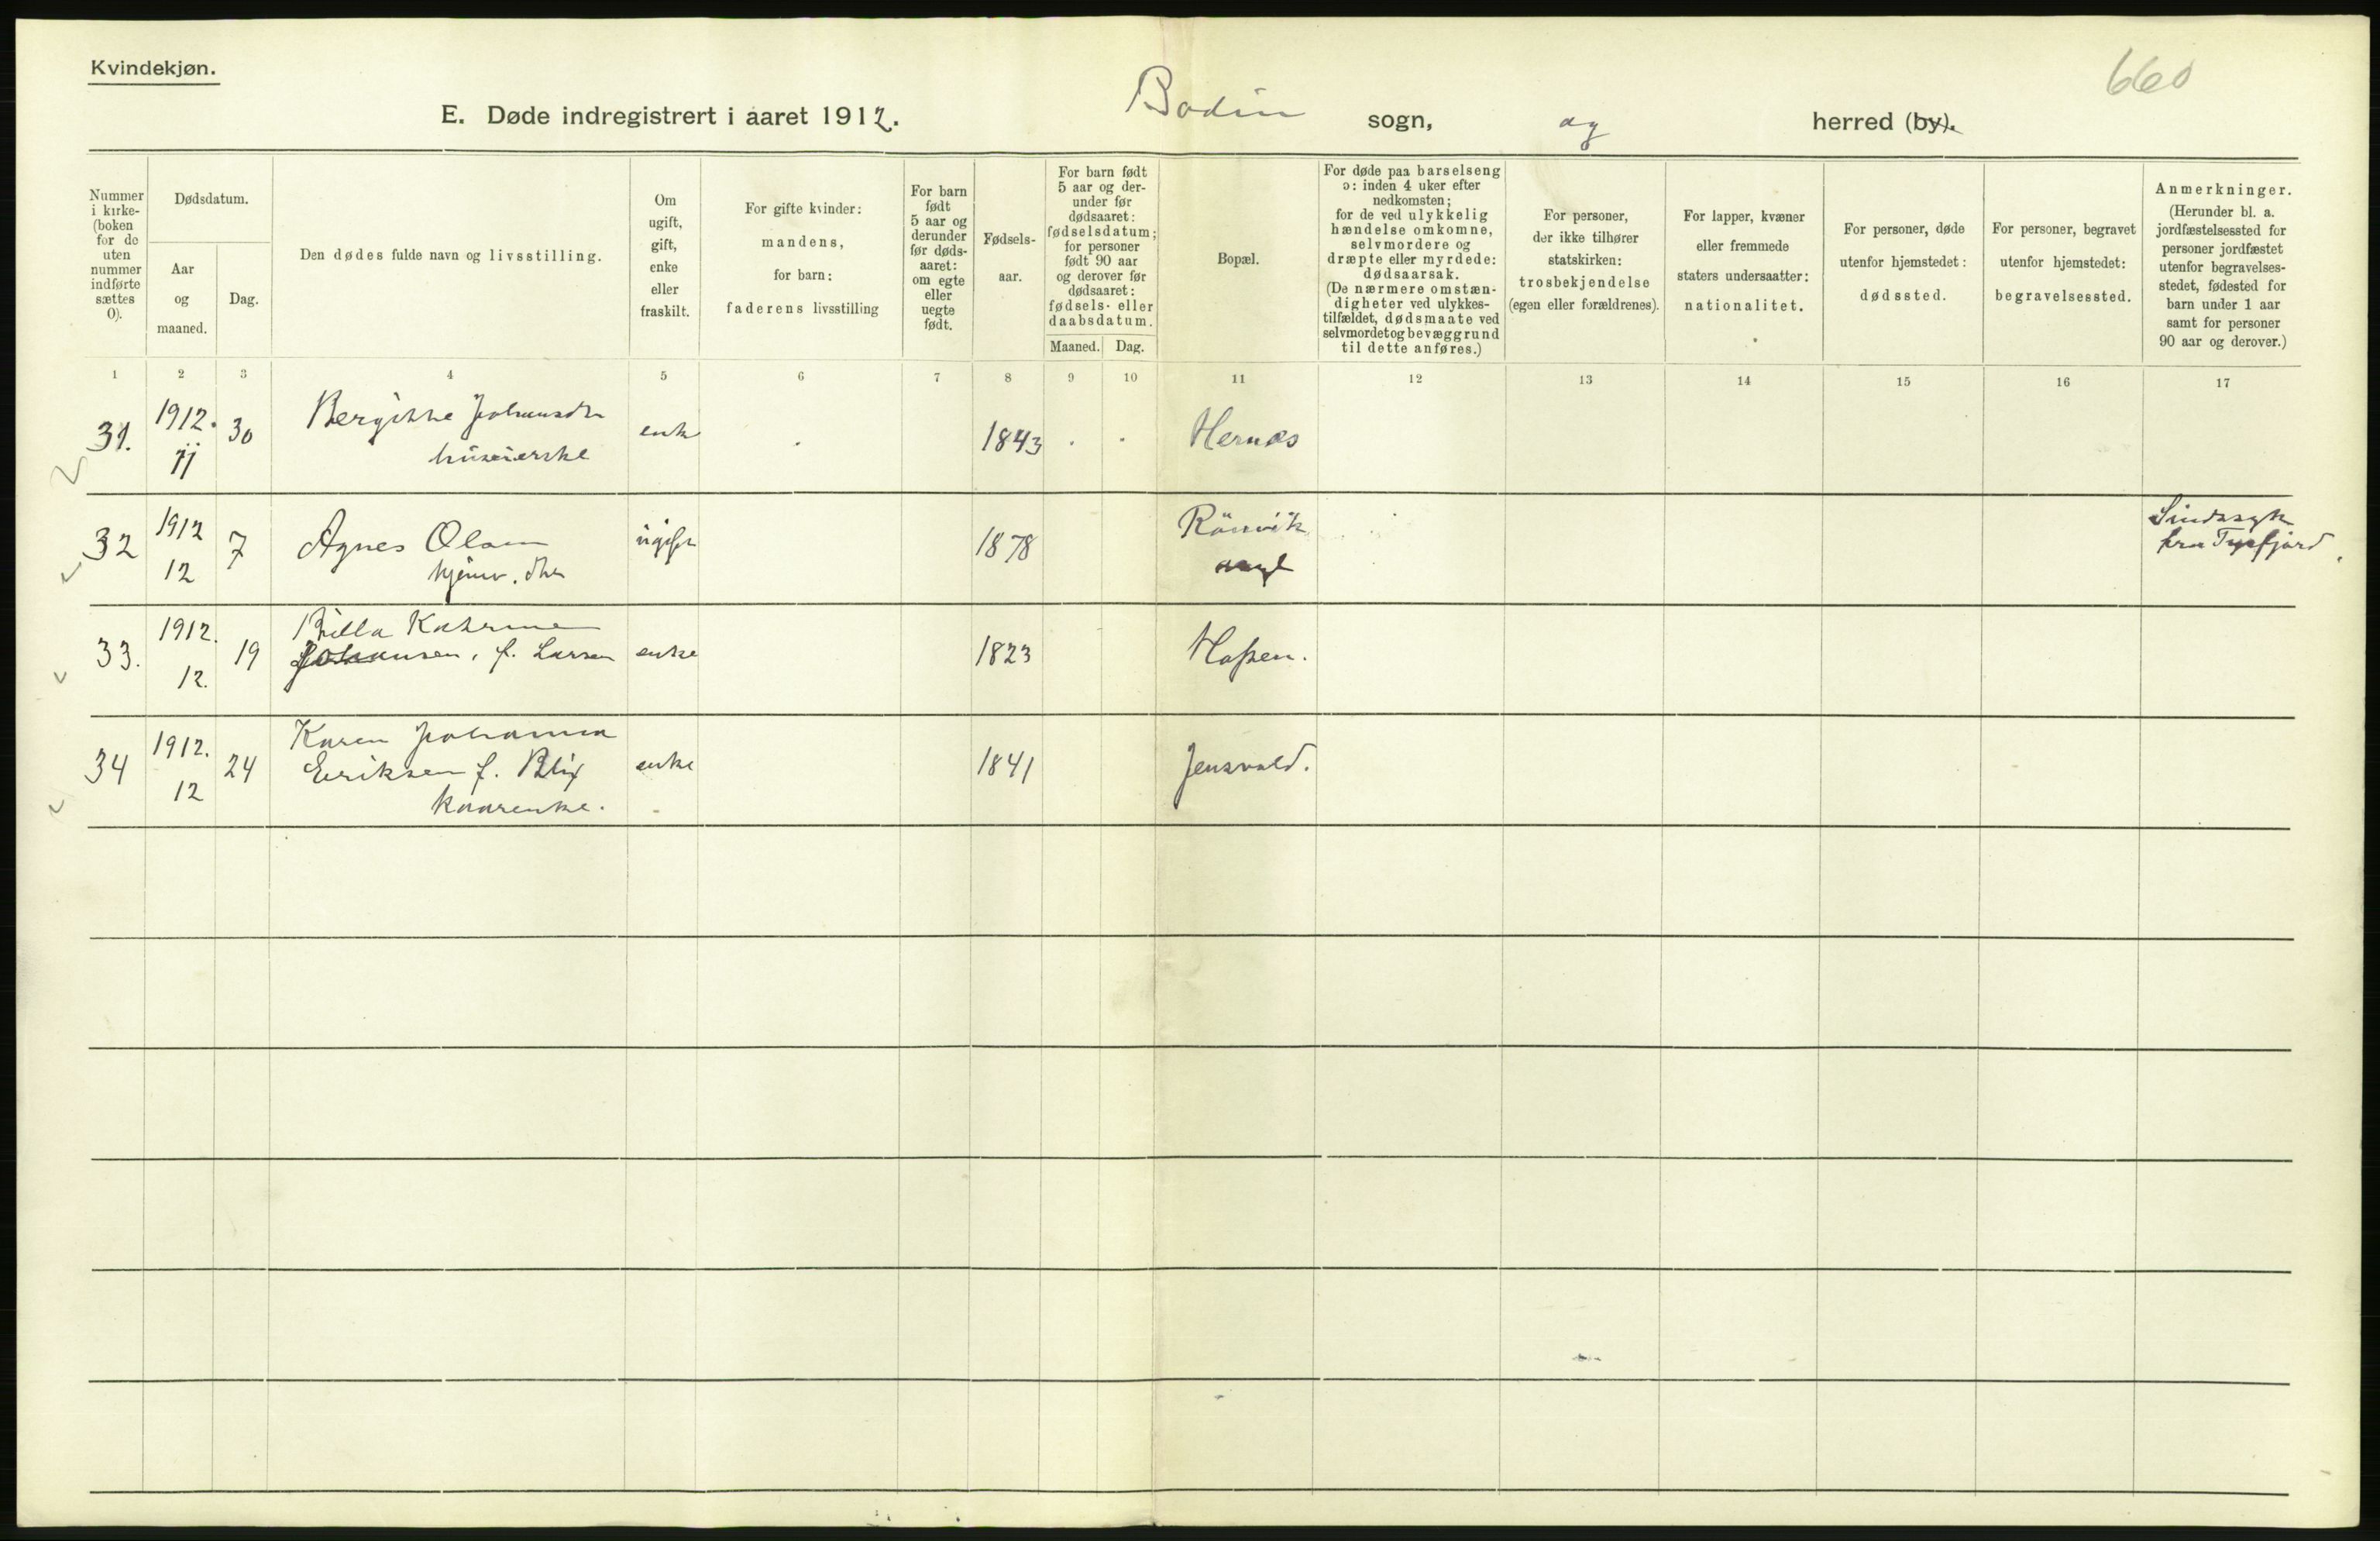 Kvindekjøn.
660
E. Døde indregistrert i aaret 1912. Bodin sogn, og herred (by).
Nummer i kirke- (boken for de uten nummer indførte sættes 0).
Dødsdatum.
Aar og maaned.
Dag.
Den dødes fulde navn og livsstilling.
Om ugift, gift, enke eller fraskilt.
For gifte kvinder: mandens, for barn: faderens livsstilling
For barn født 5 aar og derunder før døds- aaret: om egte eller uegte født.
Fødsels- aar.
For barn født 5 aar og der- under før dødsaaret: fødselsdatum; for personer født 90 aar og derover før dødsaaret: fødsels- eller daabsdatum.
Maaned.
Dag.
Bopæl.
For døde paa barselseng ɔ: inden 4 uker efter nedkomsten; for de ved ulykkelig hændelse omkomne, selvmordere og dræpte eller myrdede: dødsaarsak. (De nærmere omstæn- digheter ved ulykkes- tilfældet, dødsmaate ved selvmordet og bevæggrund til dette anføres.)
For personer, der ikke tilhører statskirken: trosbekjendelse (egen eller forældrenes).
For lapper, kvæner eller fremmede staters undersaatter: nationalitet.
For personer, døde utenfor hjemstedet: dødssted.
For personer, begravet utenfor hjemstedet: begravelsessted.
Anmerkninger. (Herunder bl. a. jordfæstelsessted for personer jordfæstet utenfor begravelses- stedet, fødested for barn under 1 aar samt for personer 90 aar og derover.)
1 2 3 4 5 6 7 8 9 10 11 12 13 14 15 16 17
31. 1912. 11 30 Bergitthe Johansdtr enke 1843 Hernes
huseierske
32 1912 12 7 Agnes Olsen ugift 1878 Rönvik asyl Sindssyk
hjemv. dtr fra Tysfjord
33. 1912. 12. 19 Katrine
Johansen, f. Larsen enke 1823 Hopen.
34 1912. 12 24 Karen Johanna
Eriksen f. Blix enke 1841 Jensvold.
kaarenke.